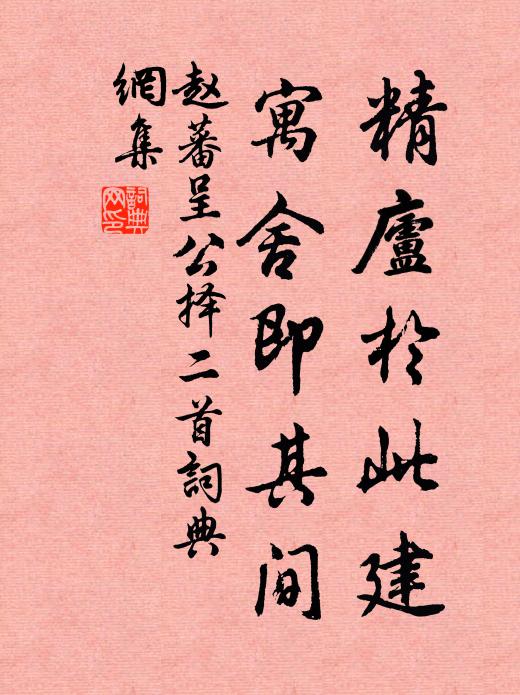 精廬於此建
寓舍即其间
赵蕃呈公择二首詞典
網集
詞典网印